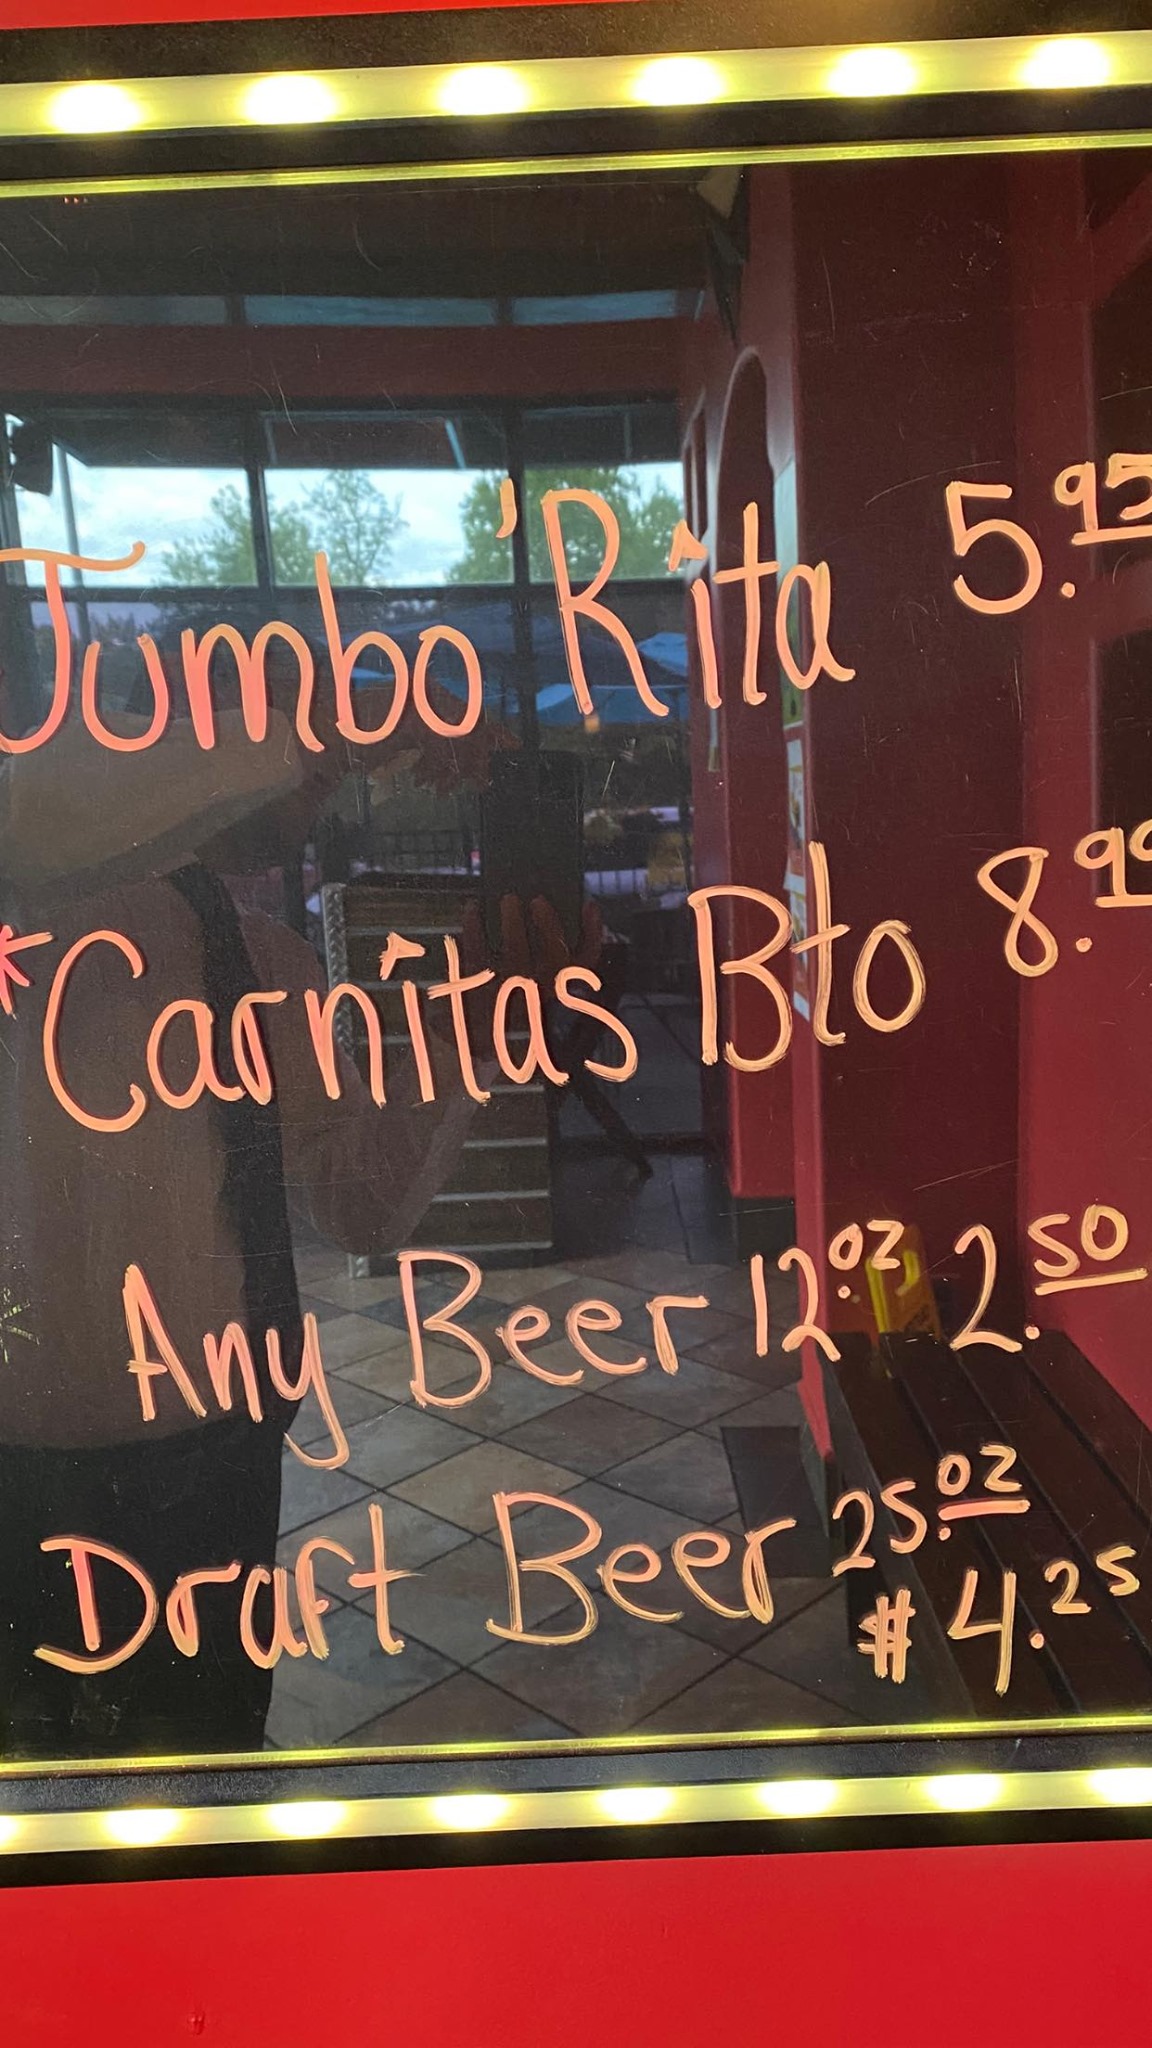 Jumbo 'Rita 5.95
*Carnitas Bto 8.99
Any Beer 12.oz 2.50
Draft Beer 25.oz
$4.25